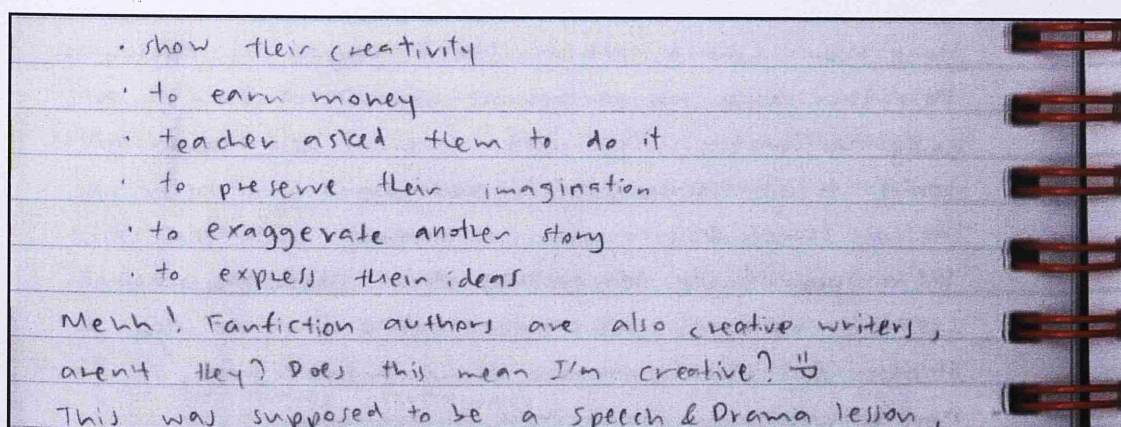 · show their creativity
· to earn money
· teacher asked them to do it
· to preserve their imagination
· to exaggerate another story
· to express their ideas
Mehh! Fanfiction authors are also creative writers,
aren't they? Does this mean I'm creative? =D
This was supposed to be a Speech & Drama lesson,